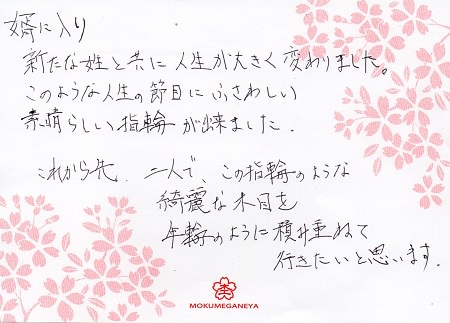 婿に入り
新たな姓と共に人生が大きく変わりました。
このような人生の節目にふさわしい
素晴らしい指輪が出来ました.
これから先、二人で、この指輪のような
綺麗な木目を
年輪のように積み重ねて
行きたいと思います.
MOKUMEGANEYA